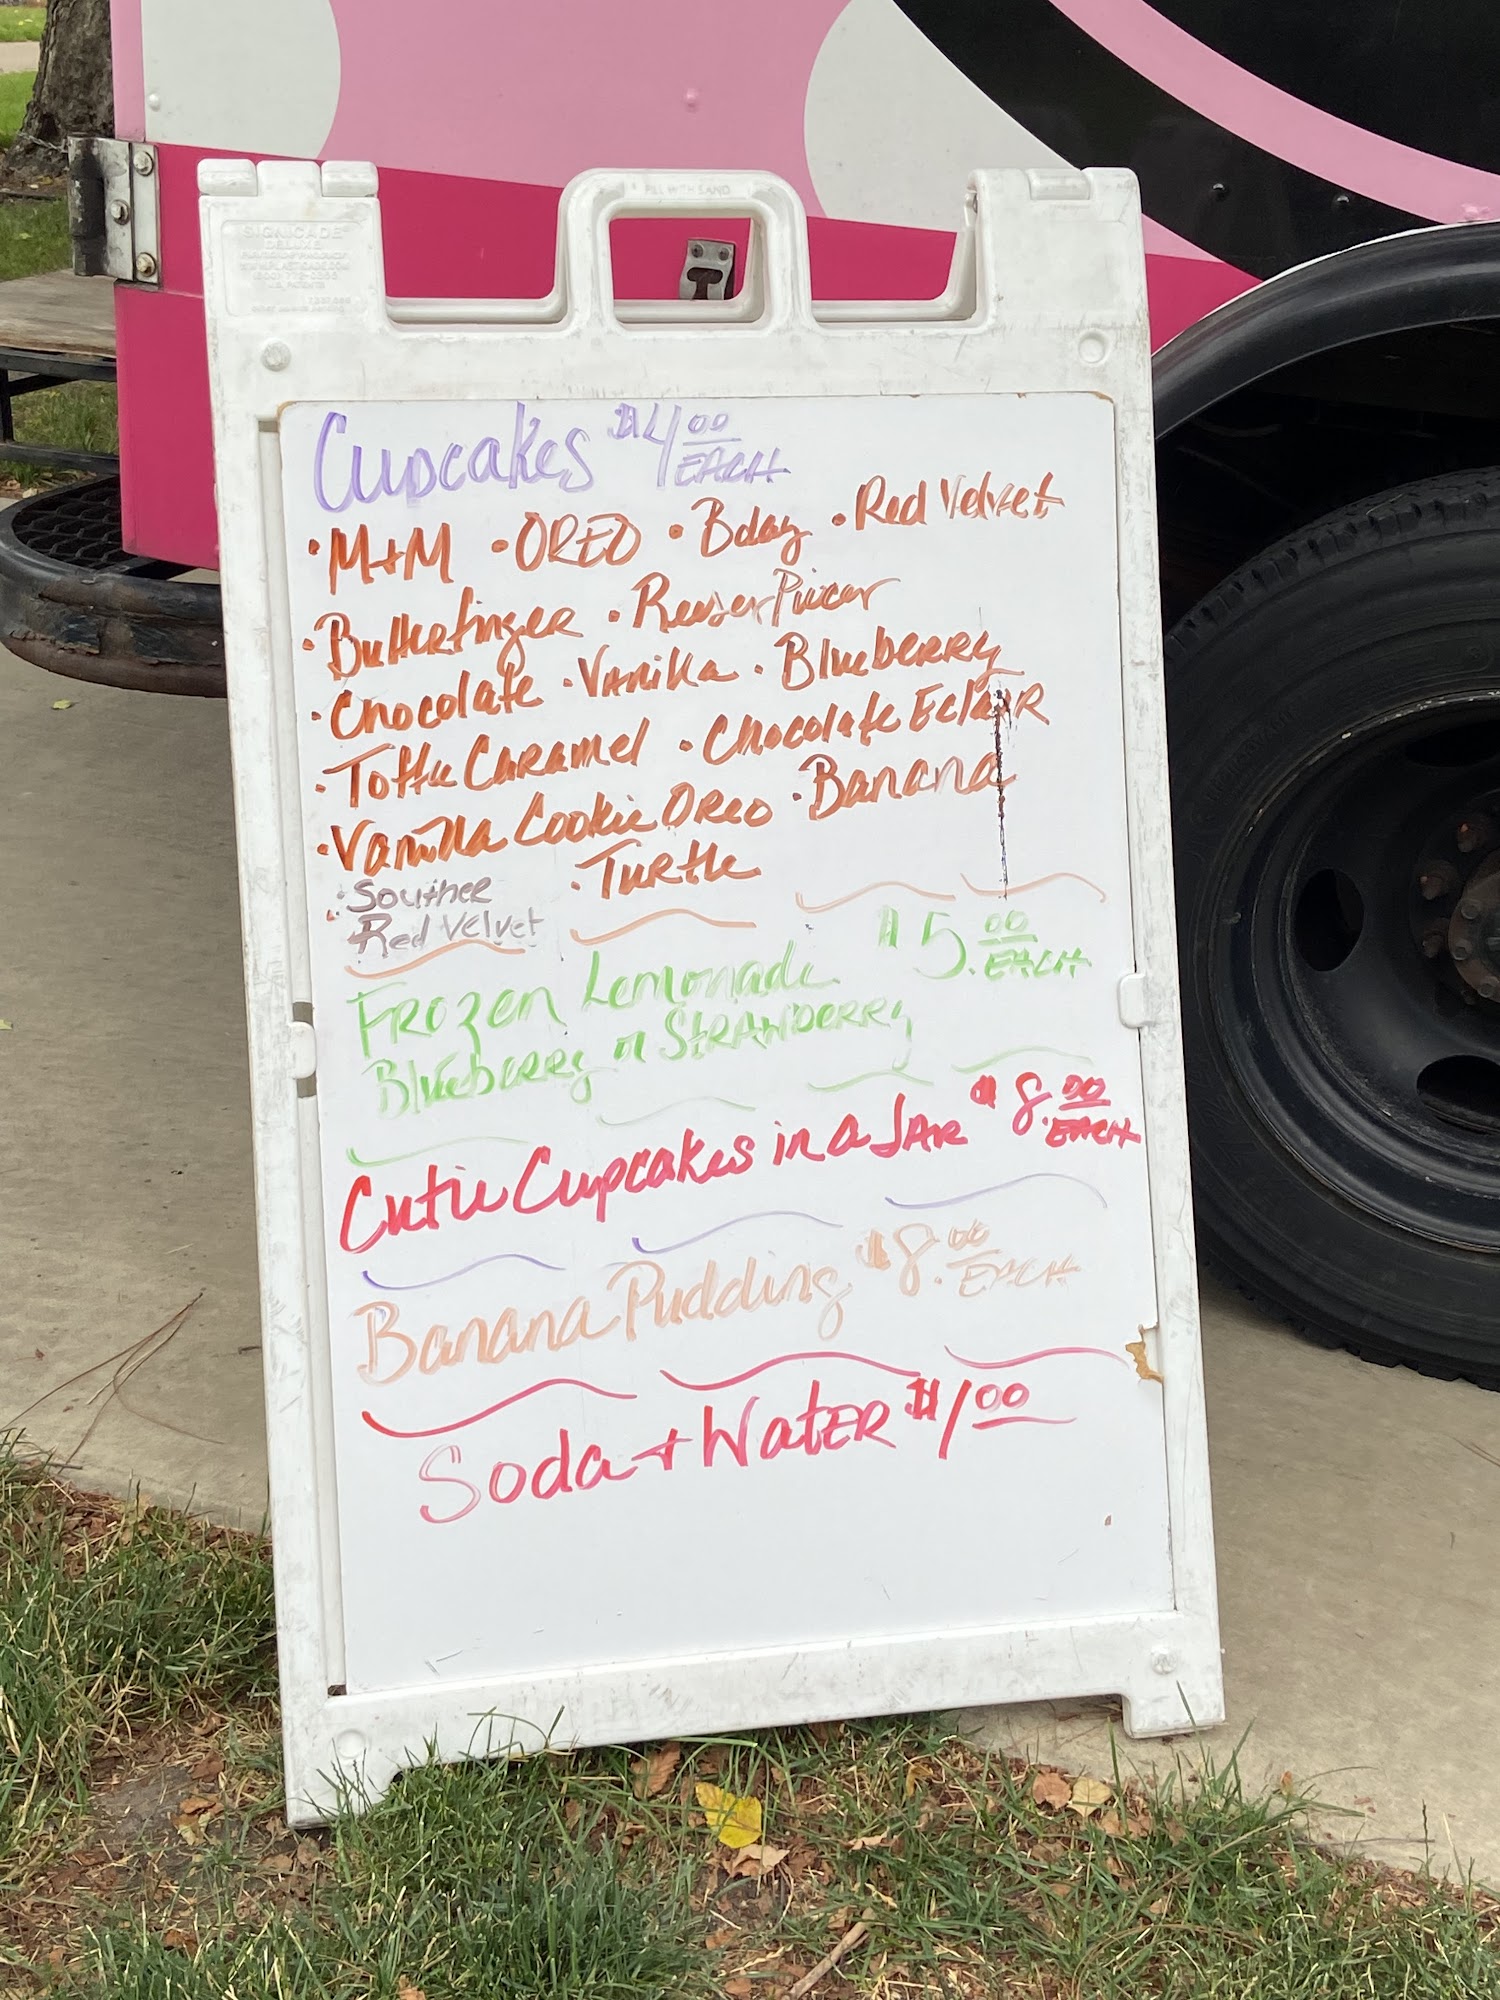 FILL WITH SAND
SIGNICADE
DELUXE
Cupcakes $4.00 EACH
• M+M • OREO • Bday • Red Velvet
• Butterfinger •
• Chocolate • Vanilla • Blueberry
• Toffee Caramel • Chocolate Eclair
• Vanilla Cookie Oreo • Banana
• Souther • Turtle
Red Velvet
Frozen Lemonade $5.00 EACH
Blueberry or STRAWBERRY
Cutie Cupcakes in a JAR $8.00 EACH
Banana Pudding $8.00 EACH
Soda + Water $1.00